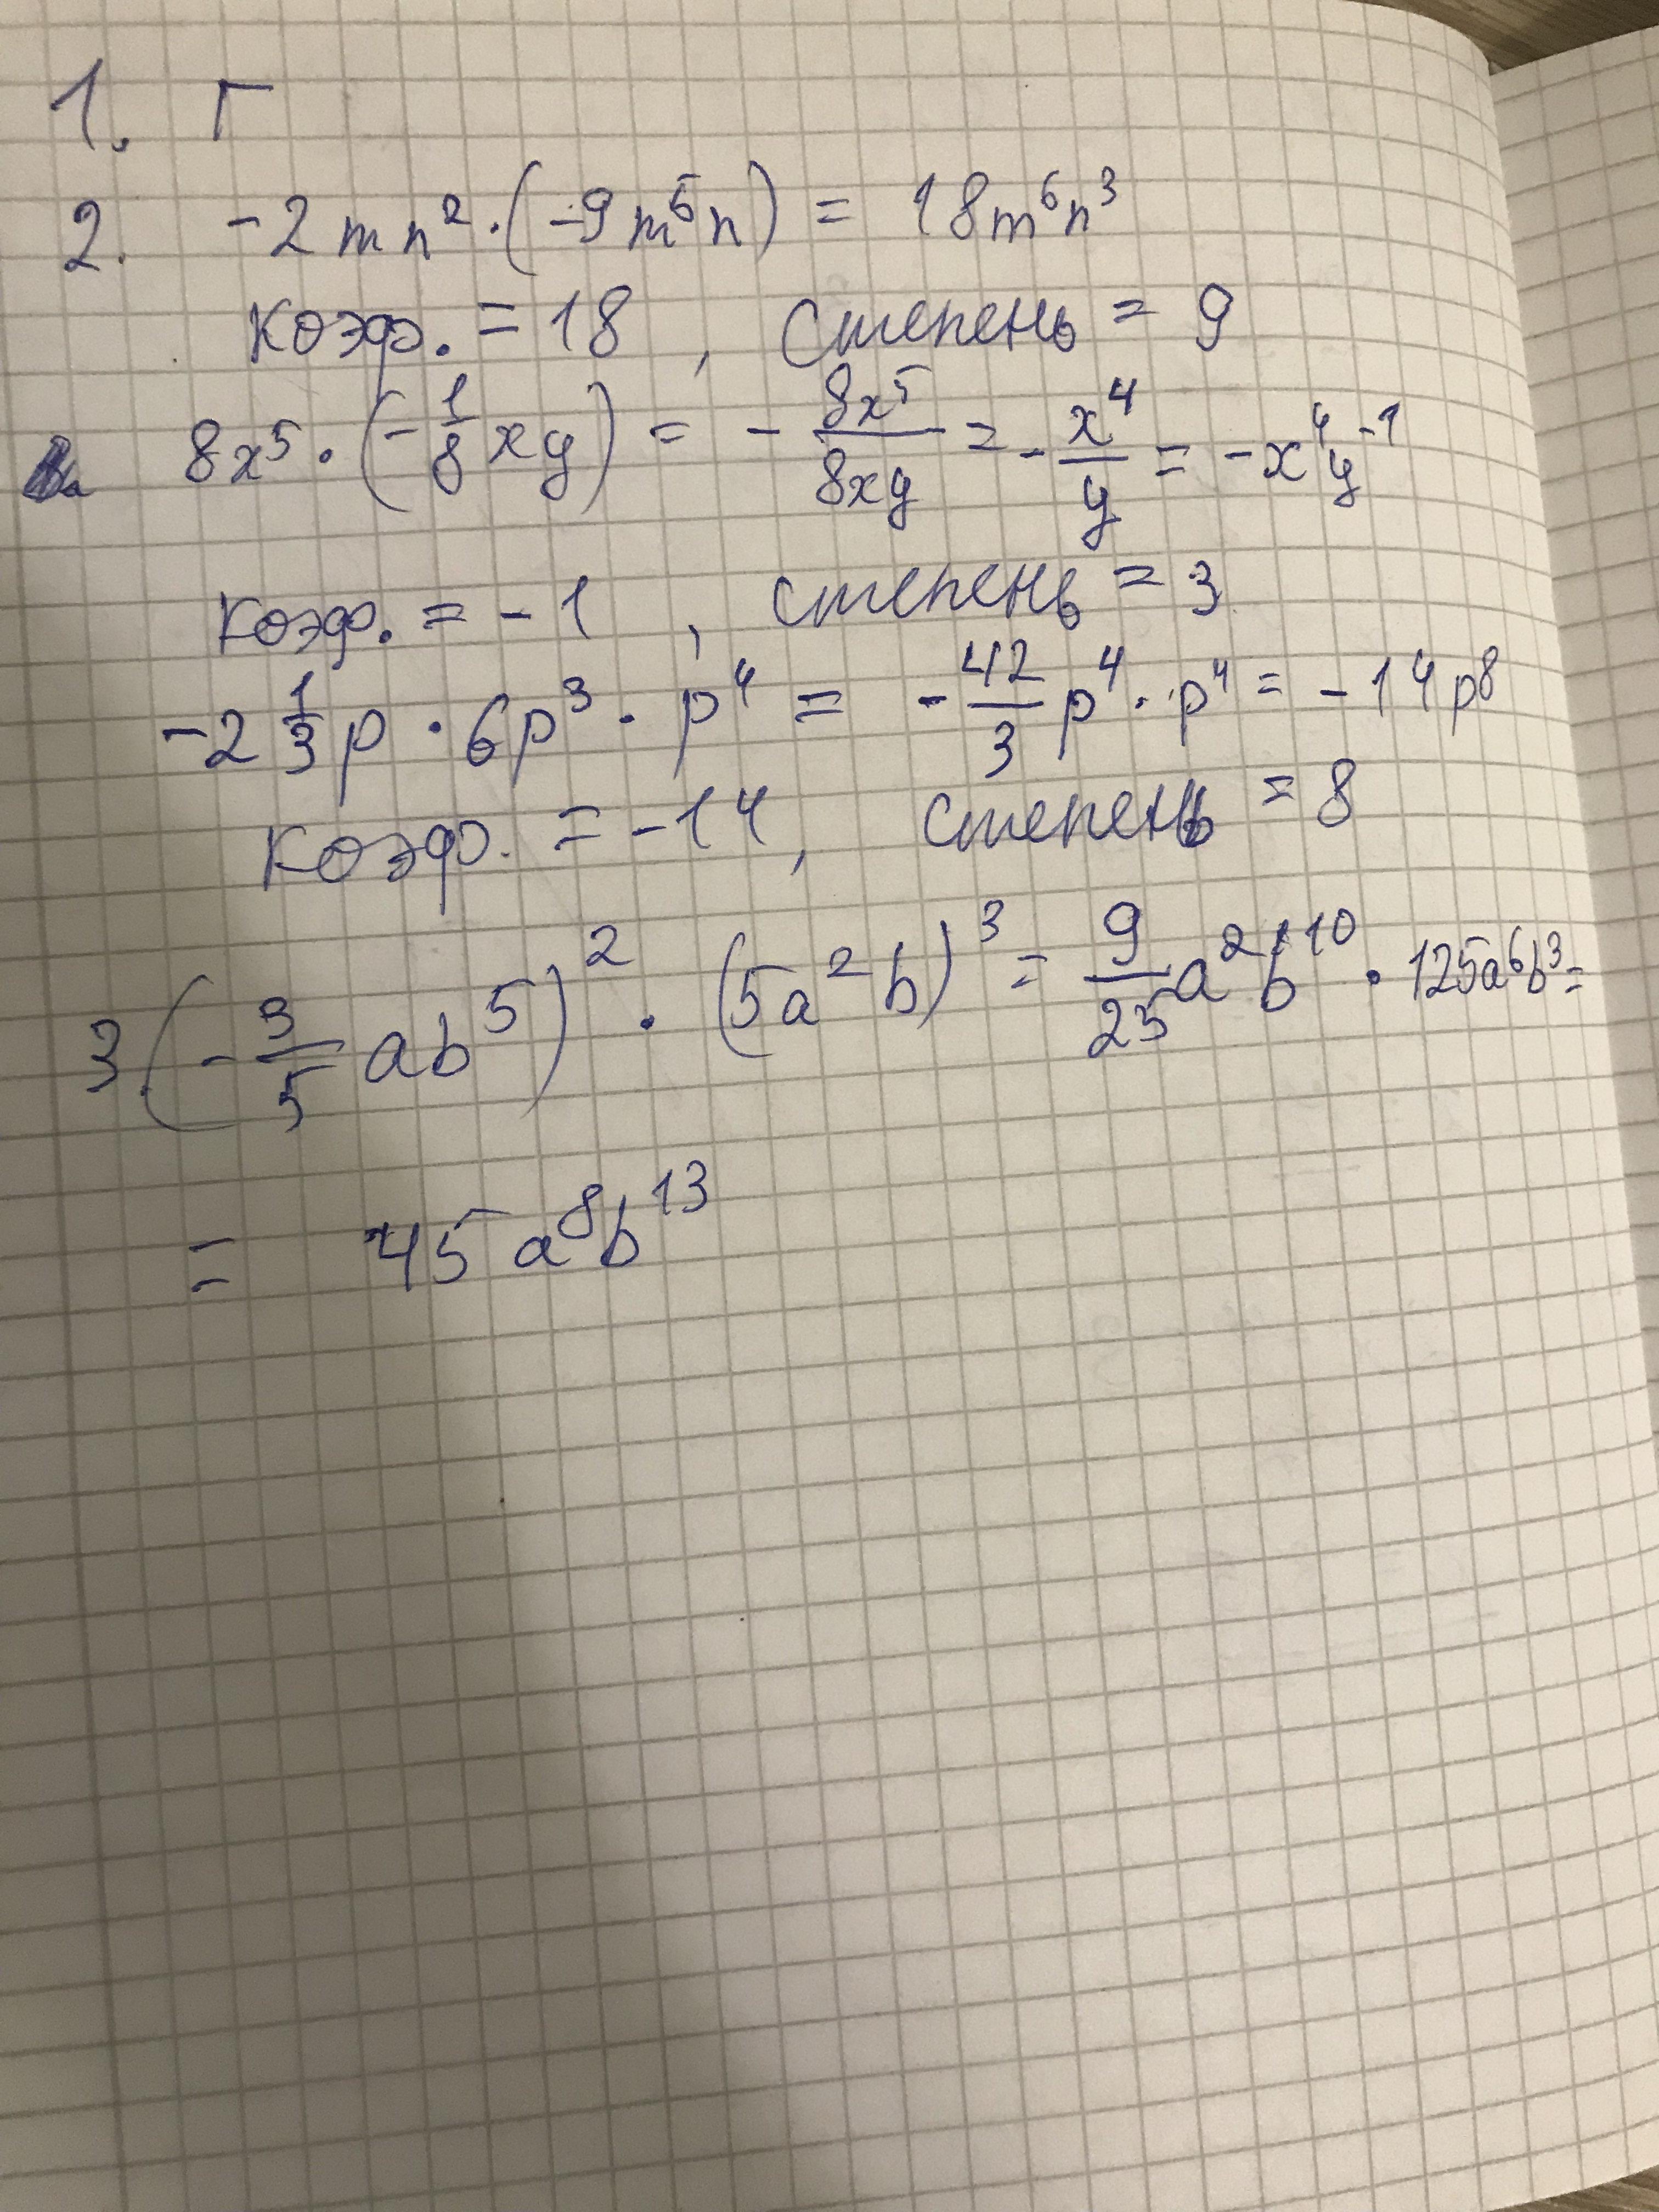 1. Г
2. -2mn²·(-9m⁵n) = 18m⁶n³
коэф. = 18, степень = 9
8x⁵·(-1/8xy) = -8x⁵/8xy = -x⁴/y = -x⁴y⁻¹
коэф. = -1, степень = 3
-2 1/3p · 6p³ · p⁴ = -42/3p⁴·p⁴ = -14p⁸
коэф. = -14, степень = 8
3. (-3/5ab⁵)² · (5a²b)³ = 9/25a²b¹⁰ · 125a⁶b³ =
= 45a⁸b¹³